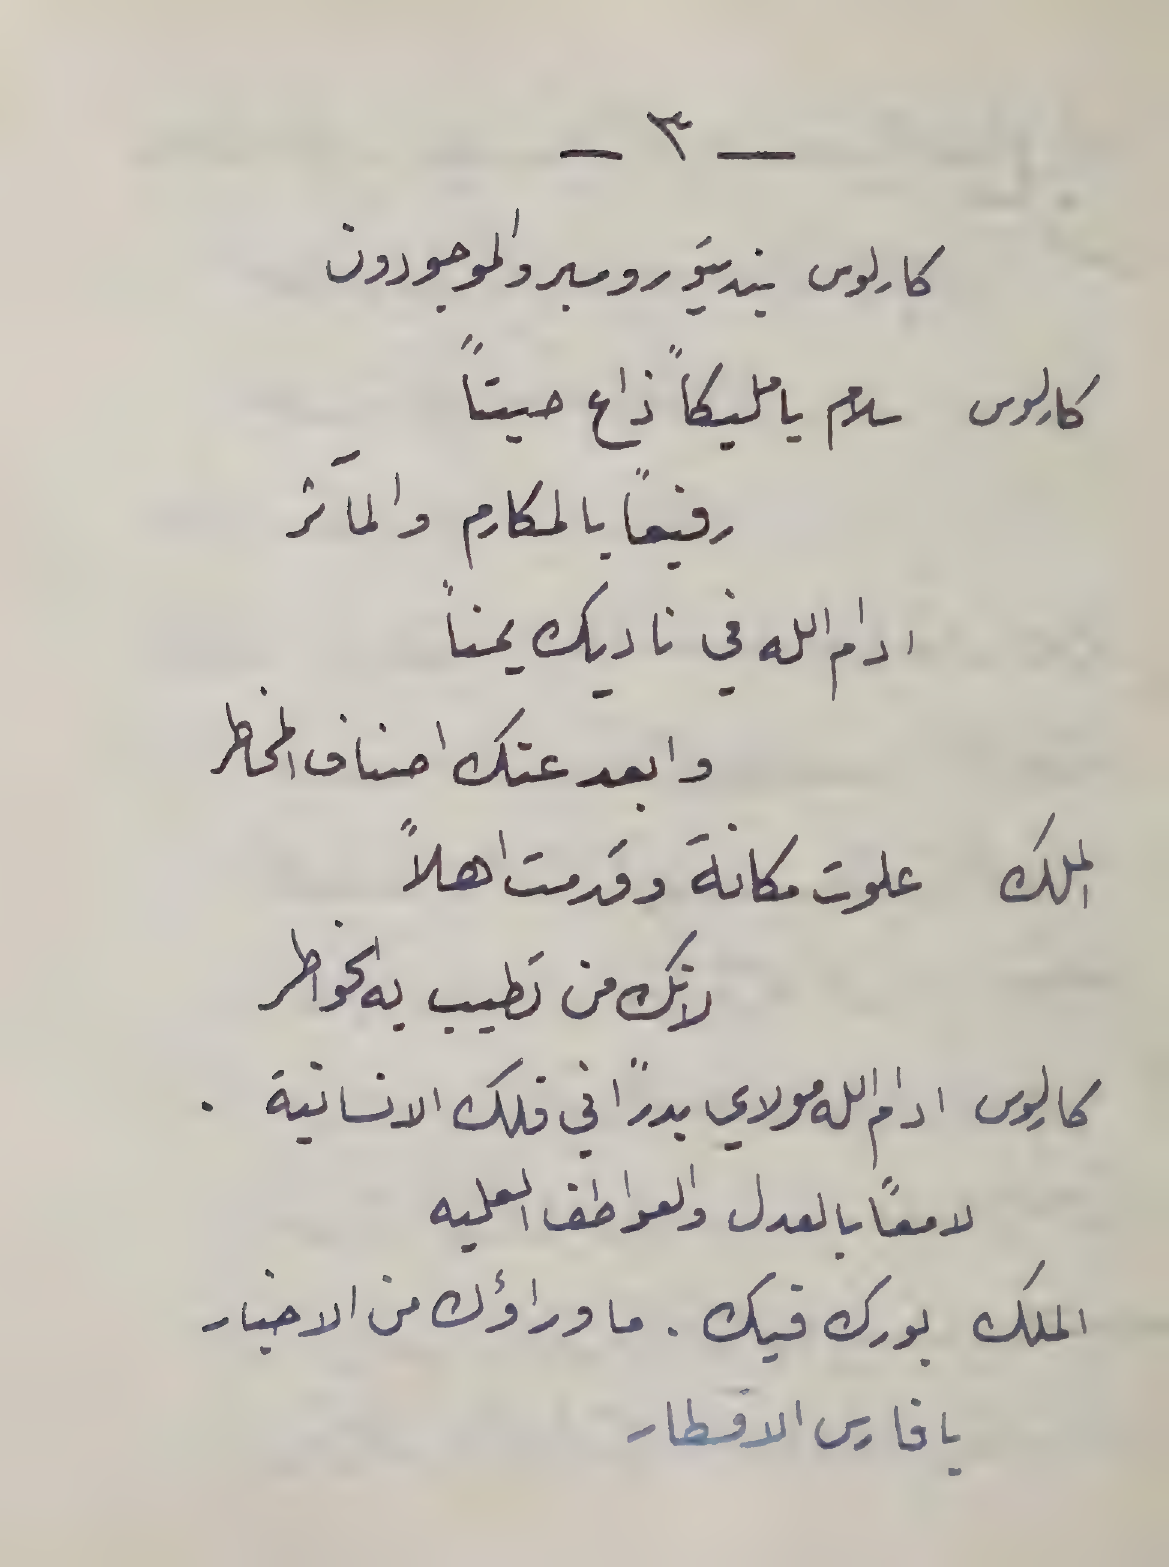 — ٣ —
كارلوس بنديتو رومبر والموجودون
كارلوس سلام يا مليكاً ذاع صيتاً
رفيعاً بالمكارم والمآثر
ادام الله في ناديك يمناً
وابعد عنك اصناف المخاطر
الملك علوت مكانة وقدمت اهلاً
لانك من تطيب به الخواطر
كارلوس ادام الله مولاي بدرًا في فلك الانسانية .
لامعًا بالعدل والعواطف العليه
الملك بورك فيك . ما وراؤك من الاخبار
يا فارس الاقطار